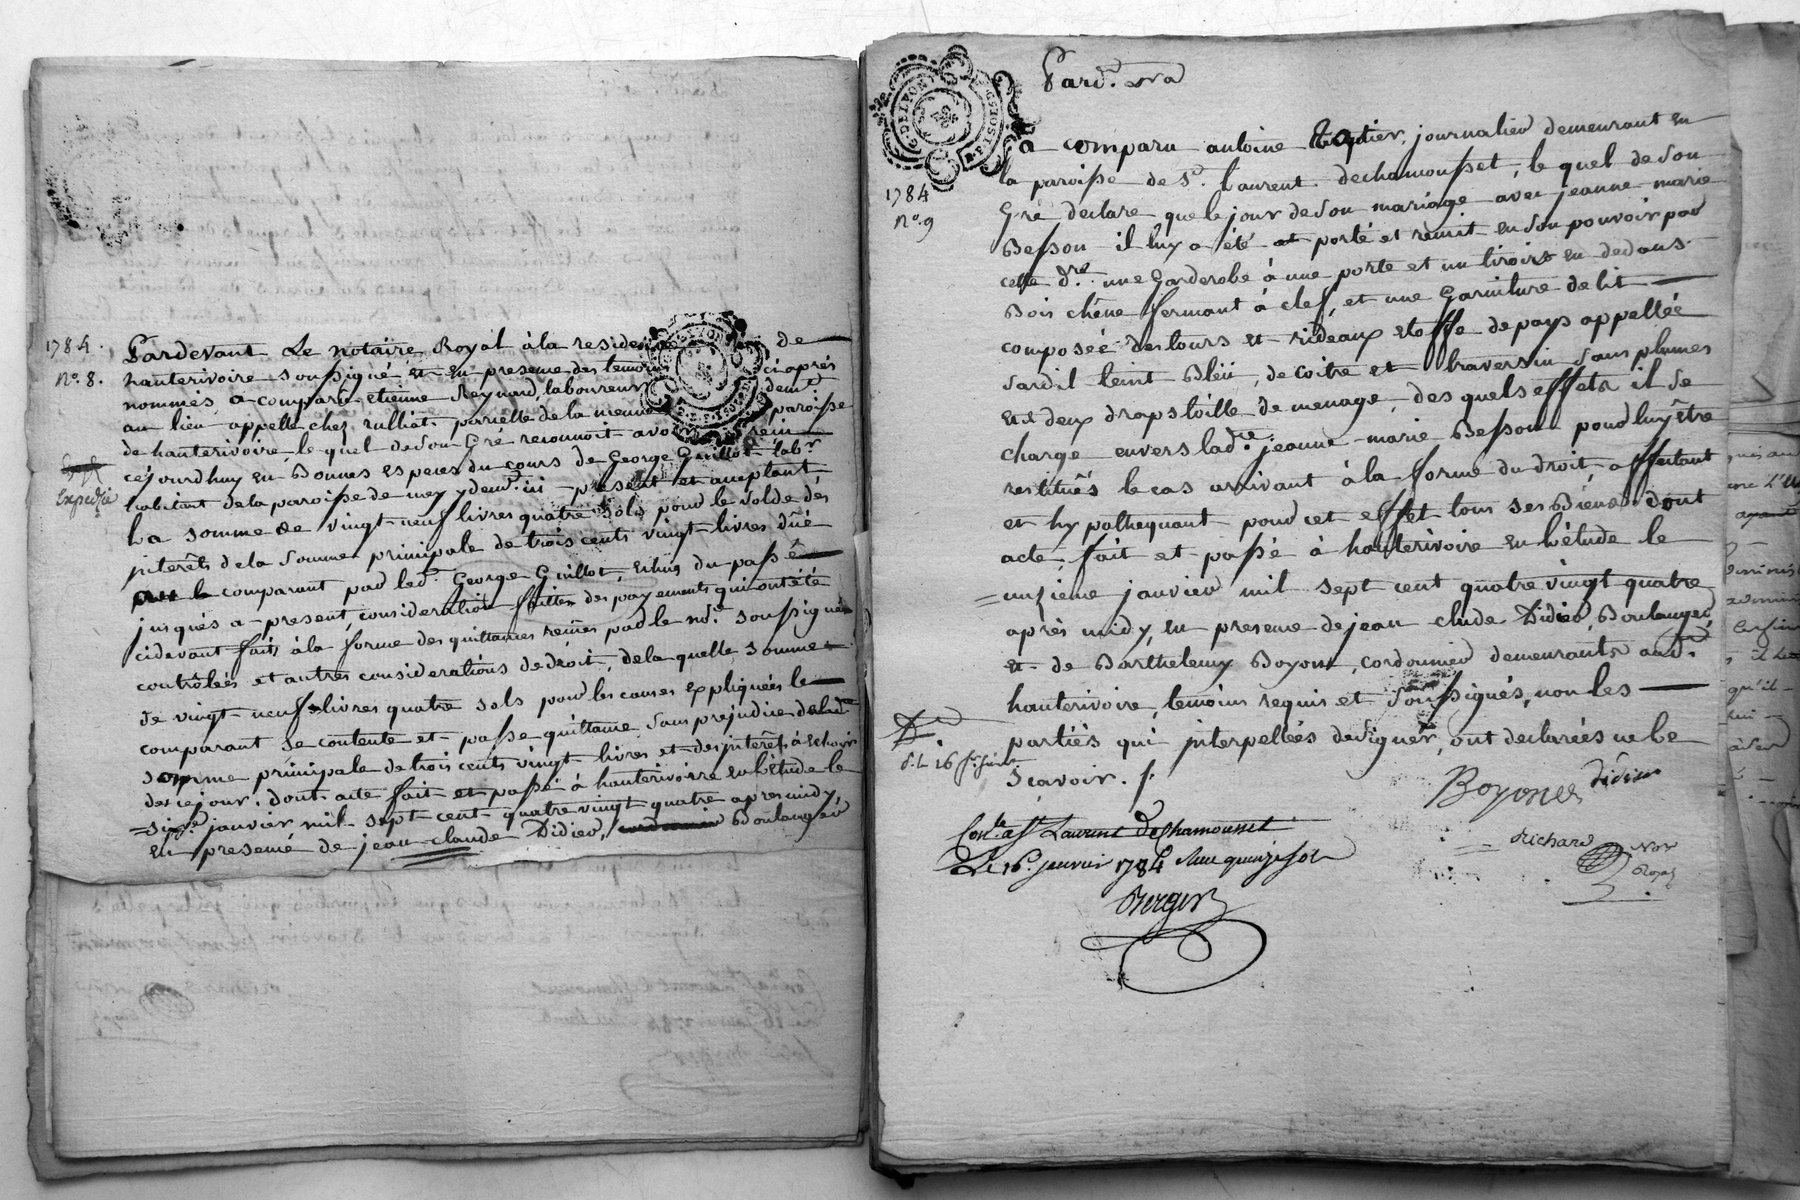 1784.
n°. 8.
Expediée
Pardevant Le notaire Royal à la residence de
hauterivoire soussigné et en presence des temoins ci après
nommés a comparu etienne Reynard, laboureur demt
au lieu appellé chez rulliat parcelle de la meme paroisse
de hauterivoire, le quel de son Gré reconnoit avoir
cejourdhuy en Bonnes especes du cours de George Guillot labr
habitant de la paroisse de meys y demt. ici present et aceptant
La somme de vingt neuf livres quatre sols pour le solde des
interêts de la somme principale de trois cents vingt livres dûë
le comparant par led. George Guillot, echus du passé
jusqués a present consideration faitte des payements qui ont été
cidevant faits à la forme des quittances reçues par le nre. soussigné
contrôlées et autres considerations de droit, de la quelle somme
de vingt neuf livres quatre sols pour les causes expliquées le
comparant se contente et passe quittance, sans prejudice de lade
somme principale de trois cents vingt livres et des interêts à echoir
de ce jour. dont acte fait et passé à hauterivoire en l'étude le
janvier mil sept cent quatre vingt quatre apres midy
en presence de jean claude Didier, Boulanger
G. DE LYON
Pard. nra
1784
n°. 9
a comparu antoine journalier demeurant en
la paroisse de St. Laurent dechamousset, le quel de son
Gré declare que le jour de son mariage avec jeanne marie
Besson il luy a été porté et remit en son pouvoir par
cette dre. une Garderobe à une porte et un tiroir en dedans
Bois chêne fermant à clef, et une Garniture de lit
composée des tours et rideaux etoffe de pays appellée
sardil teint Bleü, de coitre et traversin sans plumes
et deux draps toille de menage, des quels effets il se
charge envers lade. jeanne marie Besson pour luy être
restitués le cas arrivant à la forme du droit affectant
et hypothequant pour cet effet tous ses Biens dont
acte, fait et passé à hauterivoire en l'étude le
unzieme janvier mil sept cent quatre vingt quatre
après midy, en presence de jean clude Didier, Boulanger,
et de Barthelemy Boyon, cordonnier demeurants aud.
hauterivoire, temoins requis et soussignés, non les
partiés qui interpellées de signer, ont declarées ne le
scavoir. /.
Boyon Didier
Richard Nore
Royal
Conlé. a St Laurent de Chamousset
Le 16 janvier 1784 Reçu quinze sols
Berger